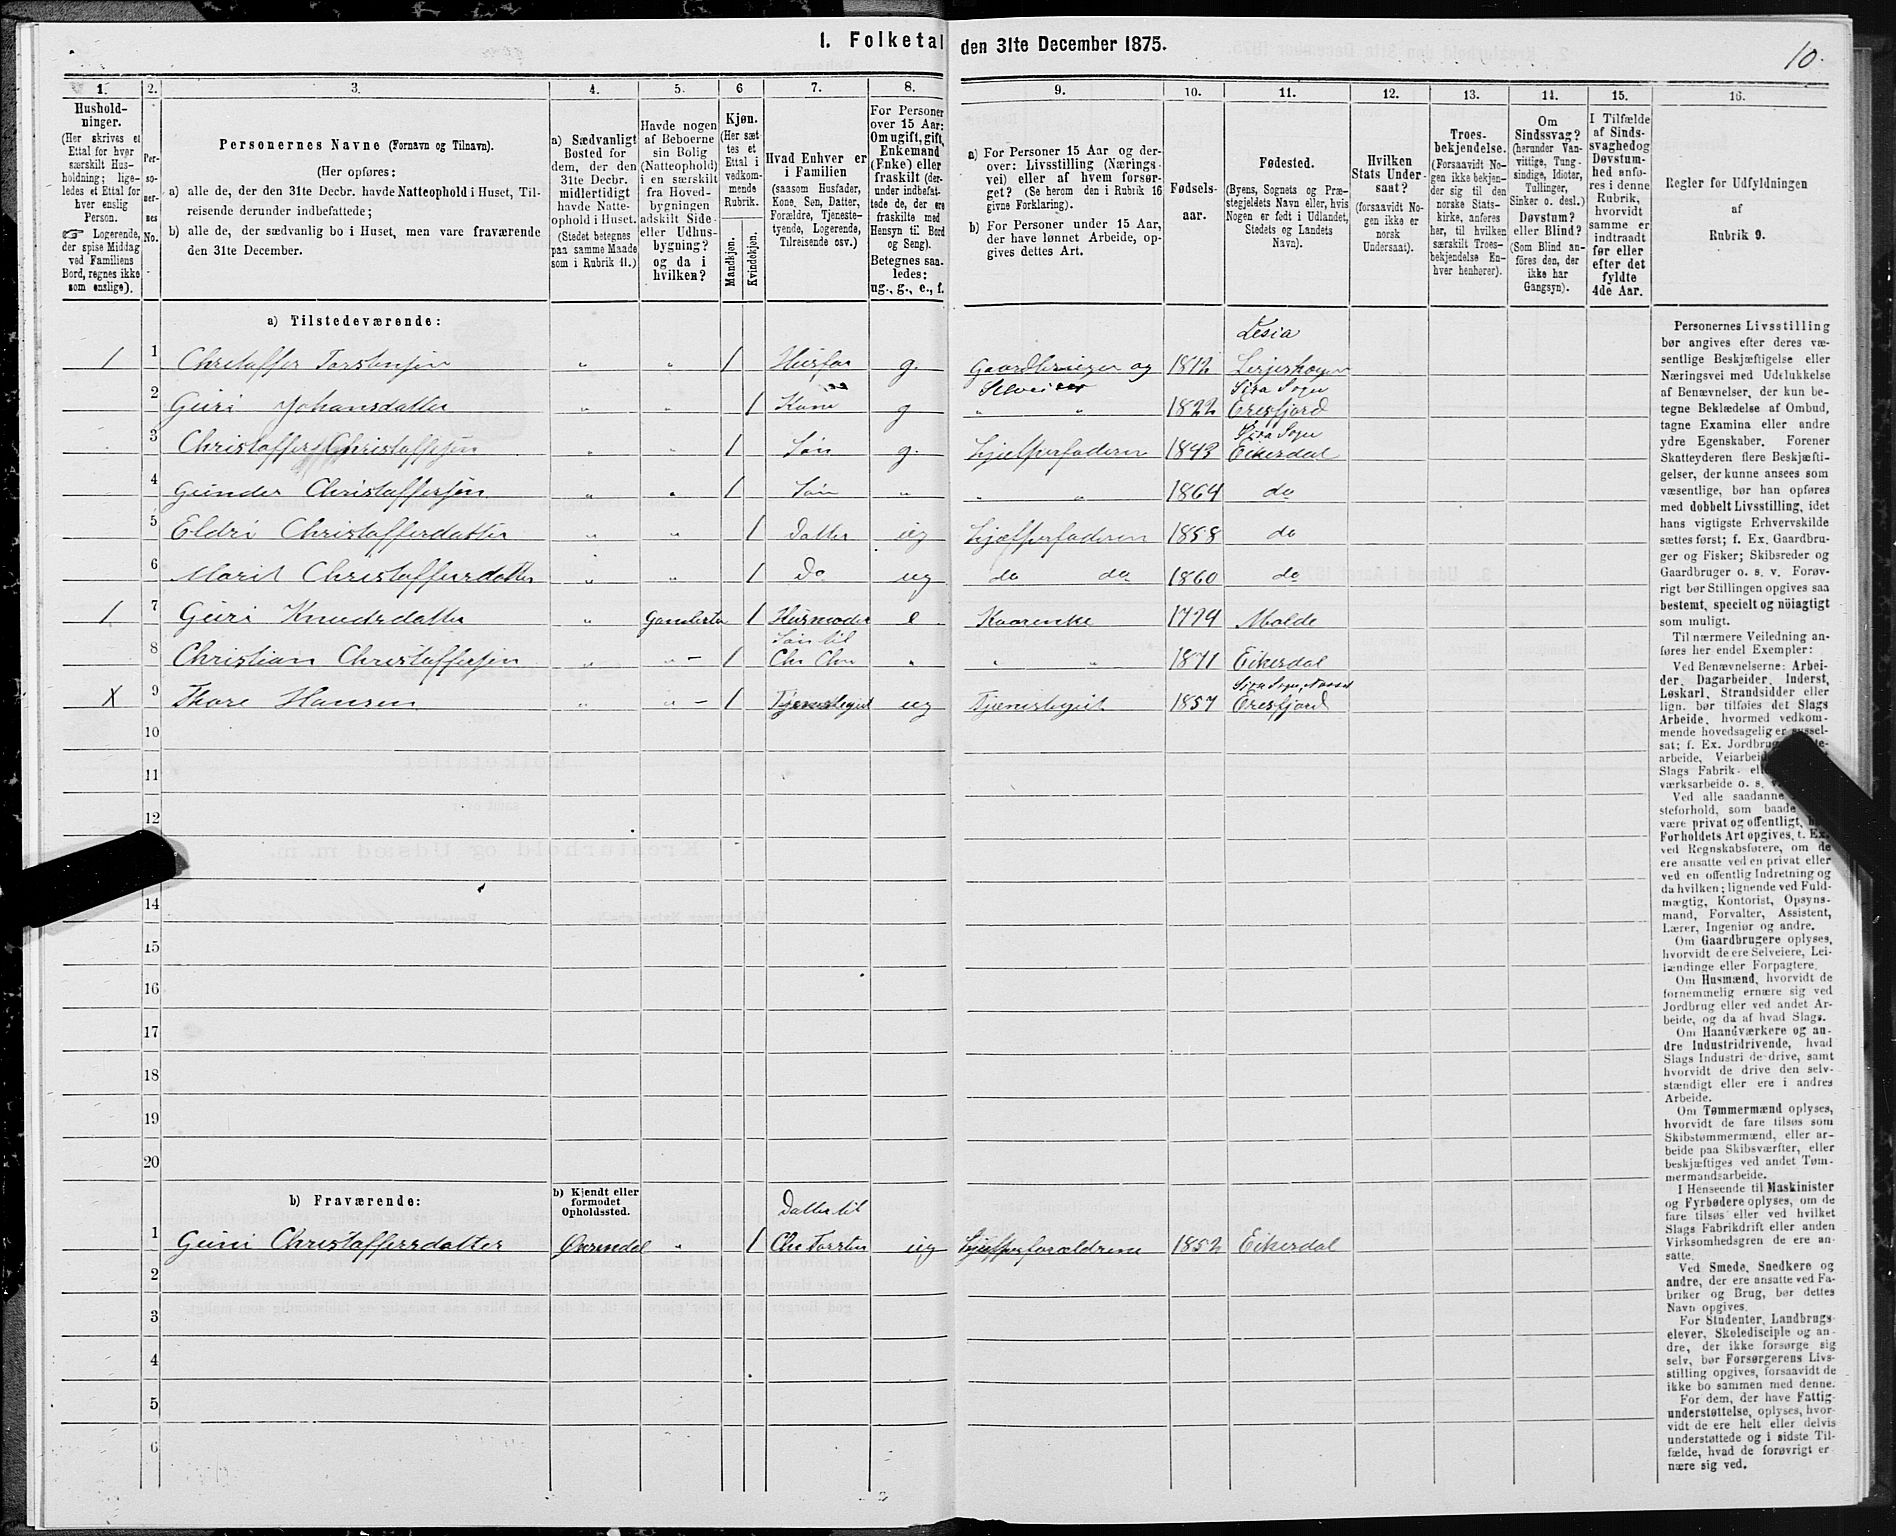 1. Folketal den 31te December 1875.
10.
1.
Hushold-
ninger.
(Her skrives et
Ettal for hver
særskilt Hus-
holdning; lige-
ledes et Ettal for
hver enslig
Person.
☞ Logerende,
der spise Middag
ved Familiens
Bord, regnes ikke
som enslige).
2.
Per-
so-
ner-
nes
No.
3.
Personernes Navne (Fornavn og Tilnavn).
(Her opføres:
a) alle de, der den 31te Decbr. havde Natteophold i Huset, Til-
reisende derunder indbefattede;
b) alle de, der sædvanlig bo i Huset, men vare fraværende
den 31te December.
4.
a) Sædvanligt
Bosted for
dem, der den
31te Decbr.
midlertidigt
havde Natte-
ophold i Huset.
(Stedet betegnes
paa samme Maade
som i Rubrik 11.)
5.
Havde nogen
af Beboerne
sin Bolig
(Natteophold)
i en særskilt
fra Hoved-
bygningen
adskilt Side-
eller Udhus-
bygning?
og da i
hvilken?
6
Kjøn.
(Her sæt-
tes et
Ettal i
vedkom-
mende
Rubrik.
Mandkjøn.
Kvindekjøn.
7.
Hvad Enhver er
i Familien
(saasom Husfader,
Kone, Søn, Datter,
Forældre, Tjeneste-
tyende, Logerende,
Tilreisende osv.)
8.
For Personer
over 15 Aar:
Om ugift, gift,
Enkemand
(Enke) eller
fraskilt (der-
under indbefat-
tede de, der ere
fraskilte med
Hensyn til Bord
og Seng).
Betegnes saa-
ledes:
ug., g., e., f.
9.
a) For Personer 15 Aar og der-
over: Livsstilling (Nærings-
vei) eller af hvem forsør-
get? (Se herom den i Rubrik 16
givne Forklaring).
b) For Personer under 15 Aar,
der have lønnet Arbeide, op-
gives dettes Art.
10.
Fødsels-
aar.
11.
Fødested.
(Byens, Sognets og Præ-
stegjeldets Navn eller, hvis
Nogen er født i Udlandet,
Stedets og Landets
Navn).
12.
Hvilken
Stats Under-
saat?
(forsaavidt No-
gen ikke er
norsk
Undersaat).
13.
Troes-
bekjendelse.
(Forsaavidt No-
gen ikke bekjen-
der sig til den
norske Stats-
kirke, anføres
her, til hvilken
særskilt Troes-
bekjendelse En-
hver henhører).
14.
Om
Sindssvag?
(herunder Van-
vittige, Tung-
sindige, Idioter,
Tullinger,
Sinker o. desl.)
Døvstum?
eller Blind?
(Som Blind an-
føres den, der
ikke har
Gangsyn).
15.
I Tilfælde
af Sinds-
svaghed og
Døvstum-
hed anfø-
res i denne
Rubrik,
hvorvidt
samme er
indtraadt
før eller
efter det
fyldte
4de Aar.
16.
Regler for Udfyldningen
af
Rubrik 9.
a) Tilstedeværende:
Lesja
1 1 Christaffer Torstensen „ „ 1 Husfar g. Gaardbruger og 1812
Selveier Sira Sogn
2 Guri Johansdatter „ „ 1 Kone g „ „ 1822 Eresfjord
Sira Sogn
3 Christaffer Christaffersen „ „ 1 Søn g. Hjælper faderen 1843 Eikesdal
4 Gunder Christaffersøn „ „ 1 Søn „ „ „ 1864 do
5 Eldri Christaffersdatter „ „ 1 Datter ug Hjælper faderen 1858 do
6 Marit Christaffersdatter „ „ 1 Do ug do do 1860 do
1 7 Guri Knudsdatter „ 1 Husmoder e Kaarenke 1779 Molde
Søn til
8 Christian Christaffersøn „ „ – 1 Chr Chr „ „ „ 1871 Eikesdal
Sira Sogn, Nesset
X 9 Thore Hansen „ „ – 1 Tjenestegut ug Tjenestegut 1857 Eresfjord
10
11
12
14
15
16
17
18
19
20
b) Fraværende:
b) Kjendt eller
formodet
Opholdssted.
Datter til
1 Guni Christaffersdatter Øxendal „ 1 Chr Torsten ug Hjælper forældrene 1852 Eikesdal
2
3
4
5
6
Personernes Livsstilling
bør angives efter deres væ-
sentlige Beskjæftigelse eller
Næringsvei med Udelukkelse
af Benævnelser, der kun be-
tegne Beklædelse af Ombud,
tagne Examina eller andre
ydre Egenskaber. Forener
Skatteyderen flere Beskjæfti-
gelser, der kunne ansees som
væsentlige, bør han opføres
med dobbelt Livsstilling, idet
hans vigtigste Erhvervskilde
sættes først; f. Ex. Gaardbru-
ger og Fisker; Skibsreder og
Gaardbruger o. s. v. Forøv-
rigt bør Stillingen opgives saa
bestemt, specielt og nöiagtigt
som muligt.
Til nærmere Veiledning an-
føres her endel Exempler:
Ved Benævnelserne: Arbei-
der, Dagarbeider, Inderst,
Løskarl, Strandsidder eller
lign. bør tilføies det Slags
Arbeide, hvormed vedkom-
mende hovedsagelig er syssel-
sat; f. Ex. Jordbrug
arbeide, Veiarbeide
Slags Fabrik- el
værksarbeide o. s. v.
Ved alle saadanne
steforhold, som baade
være privat og offentligt,
Forholdets Art opgives, t. Ex.
ved Regnskabsførere, om de
ere ansatte ved en privat eller
ved en offentlig Indretning og
da hvilken; lignende ved Fuld-
mægtig, Kontorist, Opsyns-
mand, Forvalter, Assistent,
Lærer, Ingeniør og andre.
Om Gaardbrugere oplyses,
hvorvidt de ere Selveiere, Lei-
lændinge eller Forpagtere.
Om Husmænd, hvorvidt de
fornemmelig ernære sig ved
Jordbrug eller ved andet Ar-
beide, og da af hvad Slags.
Om Haandværkere og an-
dre Industridrivende, hvad
Slags Industri de drive, samt
hvorvidt de drive den selv-
stændigt eller ere i andres
Arbeide.
Om Tømmermænd oplyses,
hvorvidt de fare tilsøs som
Skibstømmermænd, eller ar-
beide paa Skibsværfter, eller
beskjæftiges ved andet Tøm-
mermandsarbeide.
I Henseende til Maskinister
og Fyrbødere oplyses, om de
fare tilsøs eller ved hvilket
Slags Fabrikdrift eller anden
Virksomhedsgren de ere an-
satte.
Ved Smede, Snedkere og
andre, der ere ansatte ved Fa-
briker og Brug, bør dettes
Navn opgives.
For Studenter, Landbrugs-
elever, Skoledisciple og an-
dre, der ikke forsørge sig
selv, bør Forsørgerens Livs-
stilling opgives, forsaavidt de
ikke bo sammen med denne.
For dem, der have Fattig-
understøttelse, oplyses, hvor-
vidt de ere helt eller delvis
understøttede og i sidste Til-
fælde, hvad de forøvrigt er-
nære sig ved.